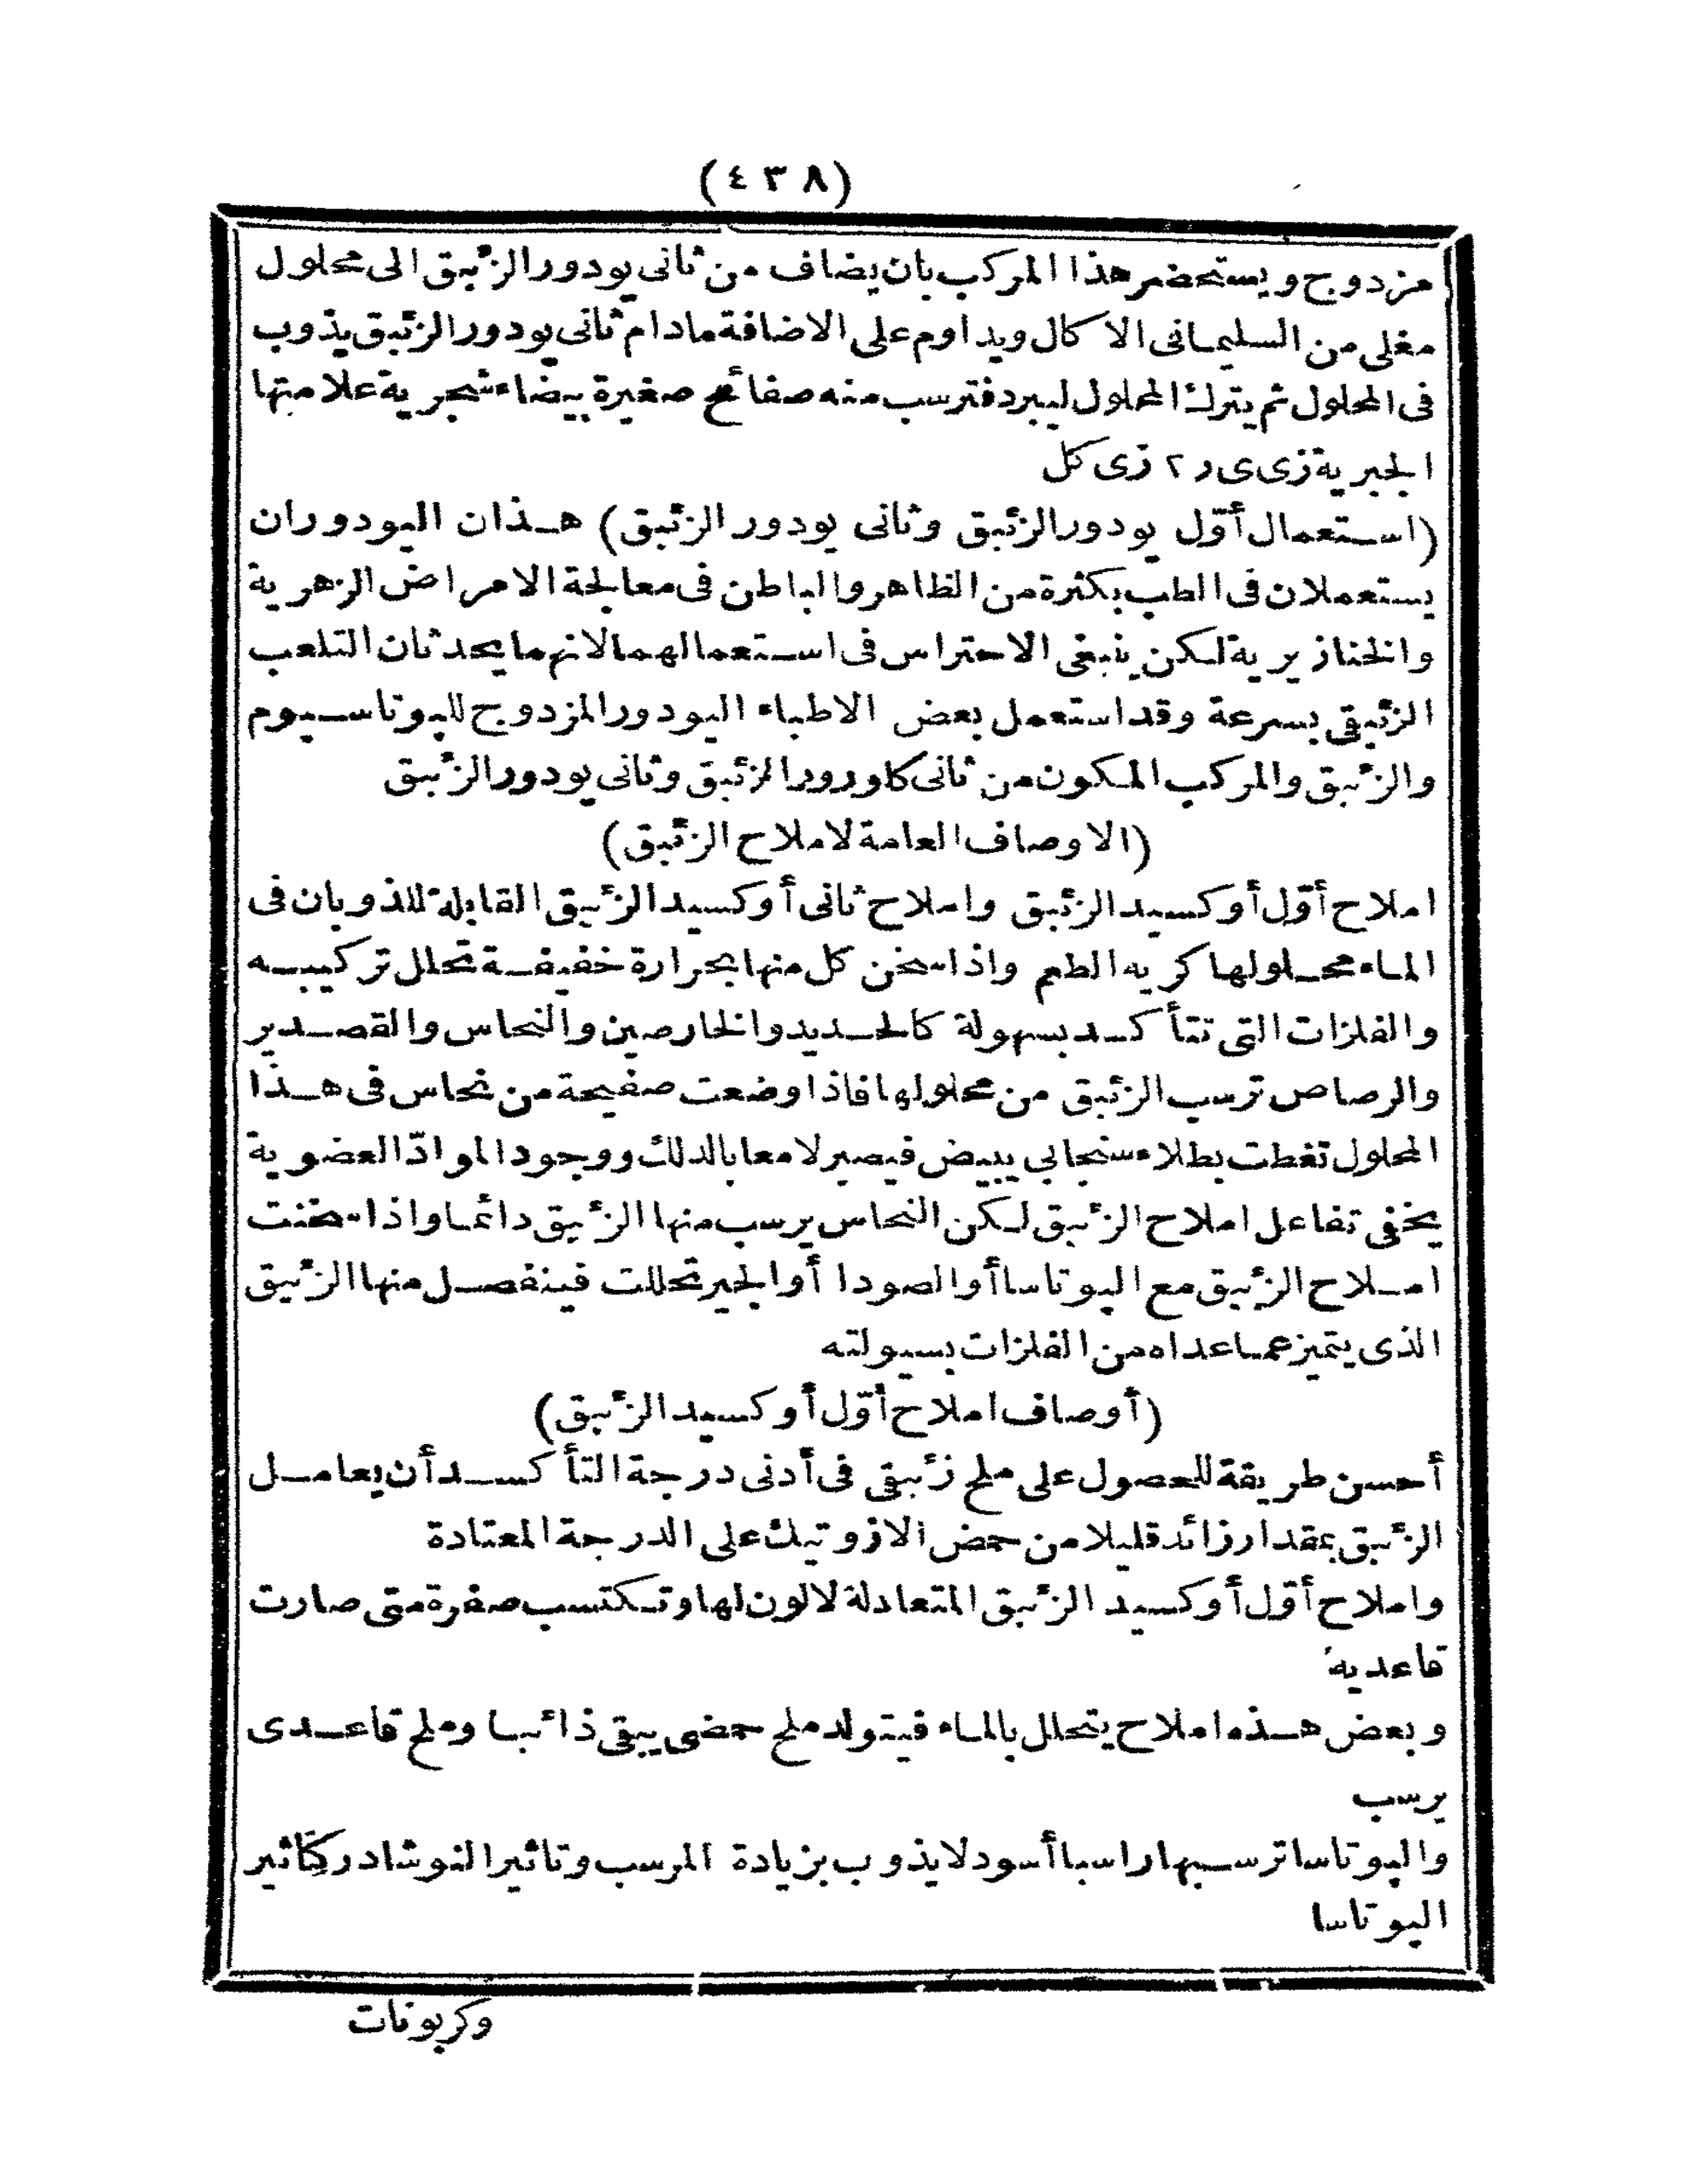 (٤٣٨)
مزدوج ويستحضر هذا المركب بان يضاف من ثانى يودور الزئبق الى محلول
مغلى من السليمانى الاكال ويداوم على الاضافة مادام ثانى يودور الزئبق يذوب
فى المحلول ثم يترك المحلول ليبرد فترسب منه صفائح صغيرة بيضاء شجرية علامتها
الجبرية زى ى ر ٢ زى كل
(استعمال أوّل يودور الزئبق وثانى يودور الزئبق) هذان اليودوران
يستعملان فى الطب بكثرة من الظاهر والباطن فى معالجة الامراض الزهرية
والخنازيرية لكن ينبغى الاحتراس فى استعمالهما لانهما يحدثان التلعب
الزئبقى بسرعة وقد استعمل بعض الاطباء اليودور المزدوج للپوتاسيوم
والزئبق والمركب المكون من ثانى كاورور الزئبق وثانى يودور الزئبق
(الاوصاف العامة لاملاح الزئبق)
املاح أوّل أوكسيد الزئبق واملاح ثانى أوكسيد الزئبق القابلة للذوبان فى
الماء محلولها كريه الطعم واذا سخن كل منها بحرارة خفيفة تحلل تركيبه
والفلزات التى تتأكسد بسهولة كالحديد والخارصين والنحاس والقصدير
والرصاص ترسب الزئبق من محلولها فاذا وضعت صفيحة من نحاس فى هذا
المحلول تغطت بطلاء سنجابى يبيض فيصير لامعا بالدلك ووجود الموادّ العضوية
يخفى تفاعل املاح الزئبق لكن النحاس يرسب منها الزئبق دائما واذا سخنت
املاح الزئبق مع الپوتاسا أو الصودا أو الجير تحللت فينفصل منها الزئبق
الذى يتميز عما عداه من الفلزات بسيولته
(أوصاف املاح أوّل أوكسيد الزئبق)
أحسن طريقة للحصول على ملح زئبقى فى أدنى درجة التأكسد أن يعامل
الزئبق بمقدار زائد قليلا من حمض الازوتيك على الدرجة المعتادة
واملاح أوّل أوكسيد الزئبق المتعادلة لا لون لها وتكتسب صفرة متى صارت
قاعدية
وبعض هذه املاح يتحلل بالماء فيتولد ملح حمضى يبقى ذائبا وملح قاعدى
يرسب
والپوتاسا ترسبها راسبا أسود لا يذوب بزيادة المرسب وتاثير النوشادر كتاثير
الپوتاسا
وكربونات